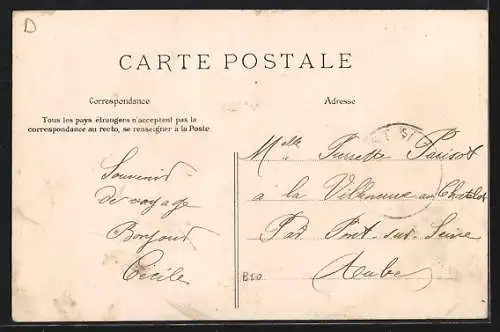 D
CARTE POSTALE
Correspondance
Adresse
Tous les pays étrangers n'acceptent pas la
correspondance au recto, se renseigner à la Poste.
Souvenir
de voyage
Bonjour
Cécile
Melle Pierrette Parisot
à la Villeneuve au Chatelot
Par Pont-sur-Seine
Aube